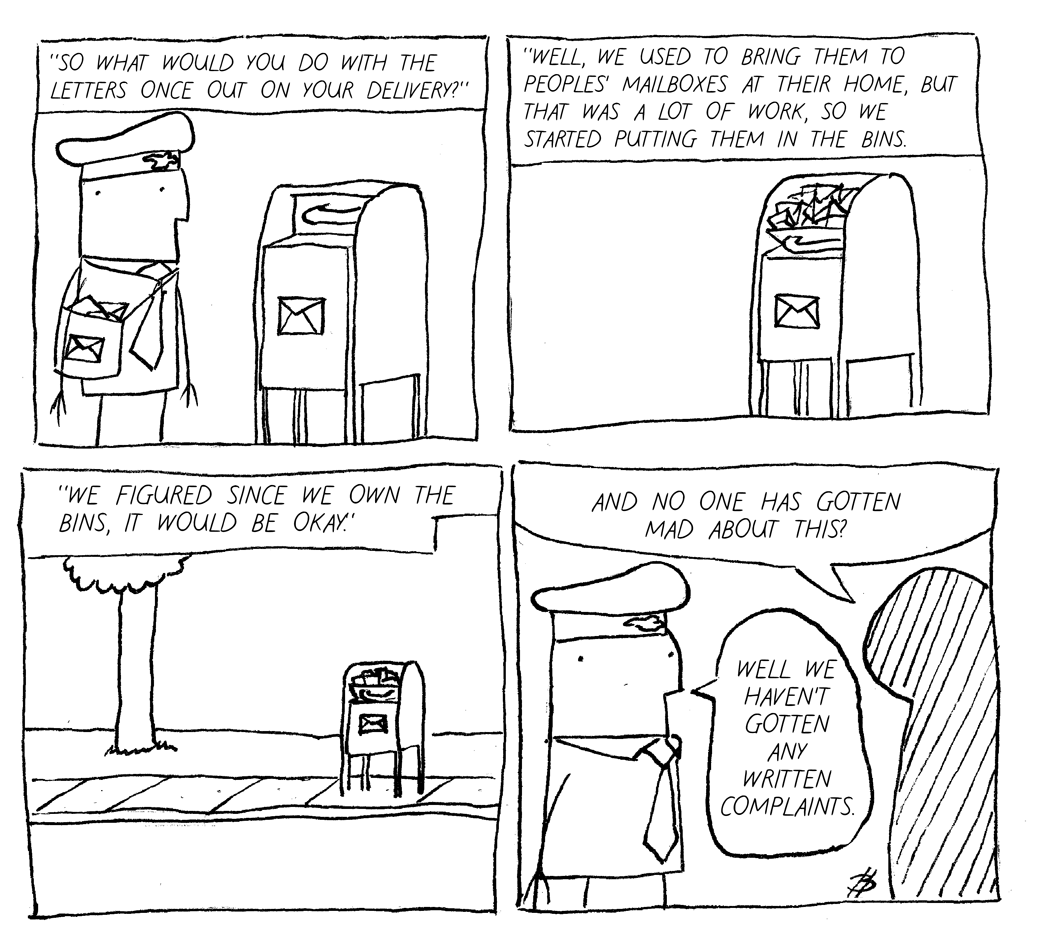 "SO WHAT WOULD YOU DO WITH THE
LETTERS ONCE OUT ON YOUR DELIVERY?"
"WELL, WE USED TO BRING THEM TO
PEOPLES' MAILBOXES AT THEIR HOME, BUT
THAT WAS A LOT OF WORK, SO WE
STARTED PUTTING THEM IN THE BINS.
"WE FIGURED SINCE WE OWN THE
BINS, IT WOULD BE OKAY."
AND NO ONE HAS GOTTEN
MAD ABOUT THIS?
WELL WE
HAVEN'T
GOTTEN
ANY
WRITTEN
COMPLAINTS.